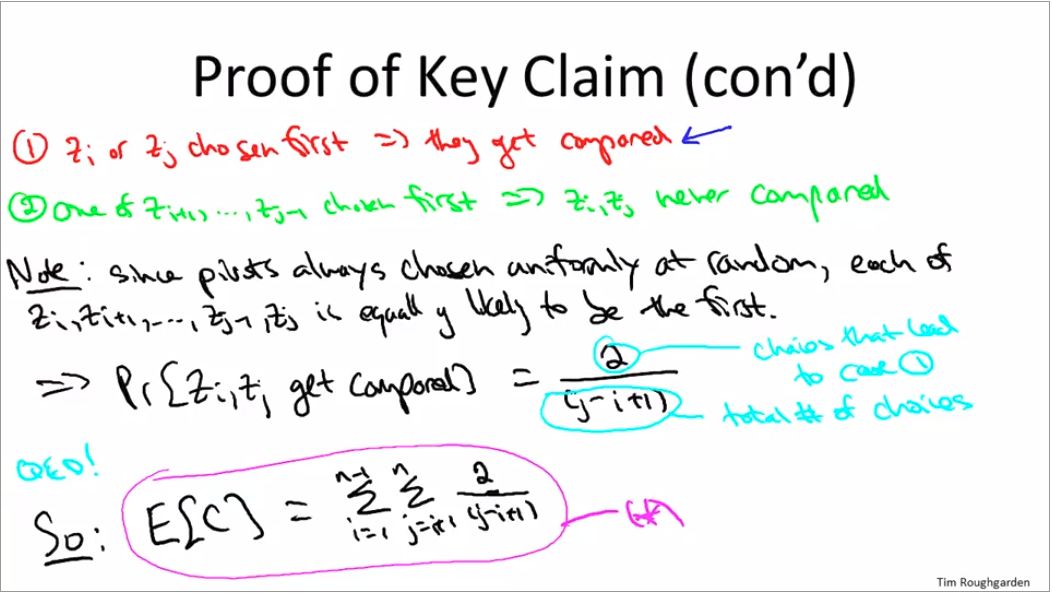 Proof of Key Claim (con'd)
① zi or zj chosen first => they get compared
② one of zi+1, ..., zj-1 chosen first => zi, zj never compared
Note: since pivots always chosen uniformly at random, each of
zi, zi+1, ..., zj-1, zj is equally likely to be the first.
=> Pr[zi, zj get compared] = 2/(j-i+1)
choices that lead
to case ①
total # of choices
QED!
So: E[C] = Σ_{i=1}^{n-1} Σ_{j=i+1}^{n} 2/(j-i+1) (*)
Tim Roughgarden